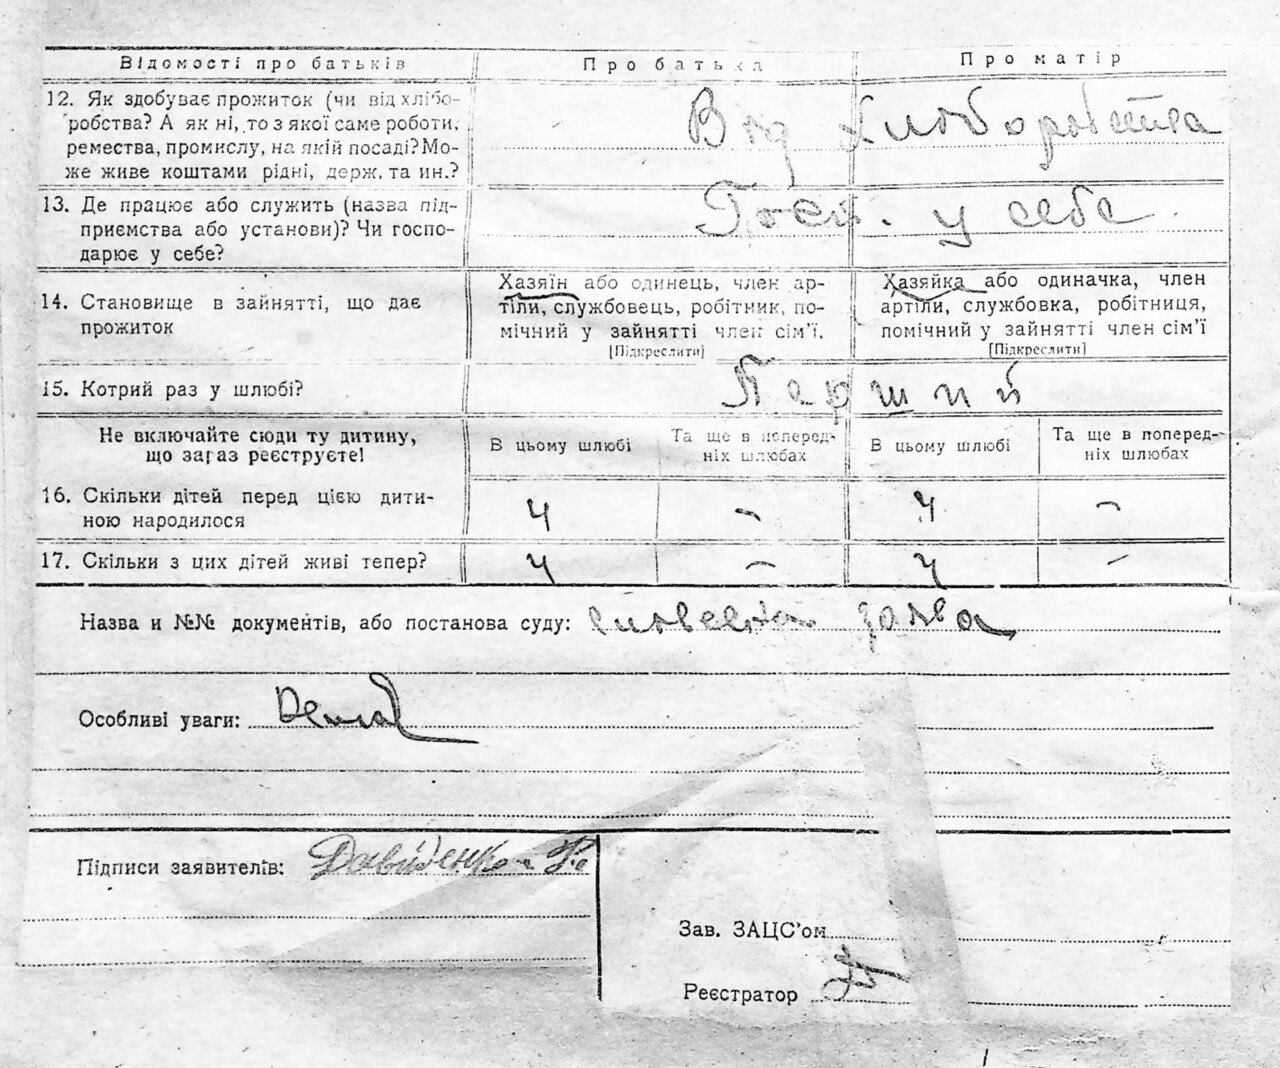 Відомості про батьків Про батька Про матір
12. Як здобуває прожиток (чи від хлібо-
робства? А як ні, то з якої саме роботи,
ремества, промислу, на якій посаді? Мо-
же живе коштами рідні, держ. та ин.?
Від хліборобства
13. Де працює або служить (назва під-
приємства або установи)? Чи госпо-
дарює у себе?
Госп. у себе
14. Становище в зайнятті, що дає
прожиток
Хазяїн або одинець, член ар-
тіли, службовець, робітник, по-
мічний у зайнятті член сім'ї.
[Підкреслити]
Хазяйка або одиначка, член
артіли, службовка, робітниця,
помічний у зайнятті член сім'ї
[Підкреслити]
15. Котрий раз у шлюбі?
Перший
Не включайте сюди ту дитину,
що зараз реєструєте!
В цьому шлюбі
Та ще в поперед-
ніх шлюбах
В цьому шлюбі
Та ще в поперед-
ніх шлюбах
16. Скільки дітей перед цією дити-
ною народилося
4 – 4 –
17. Скільки з цих дітей живі тепер? 4 – 4 –
Назва и №№ документів, або постанова суду: словесна заява
Особливі уваги:
Підписи заявителів: Давиденко
Зав. ЗАЦС'ом
Реєстратор